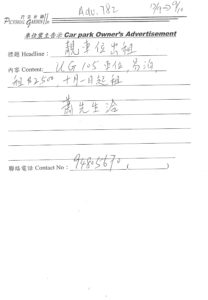 Adv. 782
PICTORIAL GARDEN III
車位業主告示 Car park Owner's Advertisement
標題 Headline: 靚車位出租
內容 Content: UG 105 車位, 易泊,
租$2500, 十月一日起租
蕭先生洽
聯絡電話 Contact No: 94805670 ( )